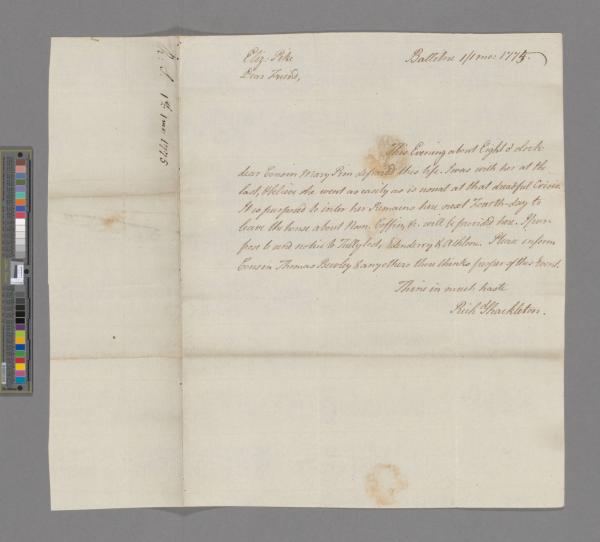 Eliz: Pike Ballitore 1/1 mo: 1775.
Dear Friend,
This Evening about Eight o'clock
dear Cousin Mary Pim departed this life. I was with her at the
last, & believe she went as easily as is usual at that dreadful Crisis.
It is purposed to inter her Remains here next Fourth-day to
leave the house about Noon. Coffin, &c. will be provided here. I pur-
pose to send notice to Tullylost, Edenderry & Athlone. Please inform
Cousin Thomas Bewley & any others thou thinks proper of this Event.
Thine in much haste
Rich^d Shackleton.
R. S. 1st 1 mo 1775